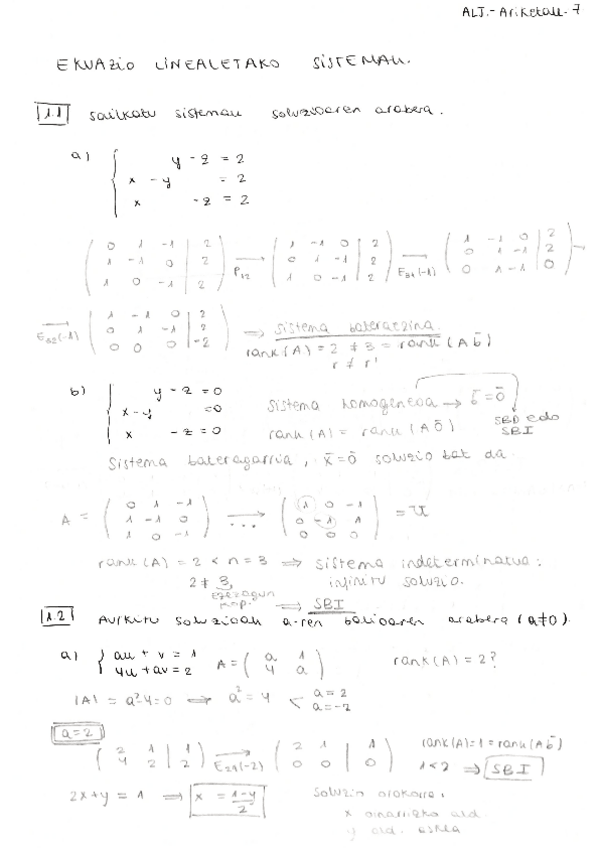 ALJ.- Ariketak- 7
EKUAZIO LINEALETAKO SISTEMAK.
1.1 Sailkatu sistemak soluzioaren arabera.
a) { y - z = 2
x - y = 2
x - z = 2
( 0 1 -1 | 2
1 -1 0 | 2
1 0 -1 | 2 ) →P12 ( 1 -1 0 | 2
0 1 -1 | 2
1 0 -1 | 2 ) →E31(-1) ( 1 -1 0 | 2
0 1 -1 | 2
0 1 -1 | 0 ) →
→E32(-1) ( 1 -1 0 | 2
0 1 -1 | 2
0 0 0 | -2 ) ⇒ Sistema bateraezina.
rank(A) = 2 ≠ 3 = rank(A b̄)
r ≠ r'
b) { y - z = 0
x - y = 0
x - z = 0
Sistema homogeneoa → b̄ = ō
rank(A) = rank(A ō) SBD edo
SBI
Sistema bateragarria, x̄ = ō soluzio bat da.
A = ( 0 1 -1
1 -1 0
1 0 -1 ) →... ( 1 0 -1
0 -1 1
0 0 0 ) = U
rank(A) = 2 < n = 3 ⇒ sistema indeterminatua:
2 ≠ 3, infinitu soluzio.
Ezezagun
kop. ⇒ SBI
1.2 Aurkitu soluzioak a-ren balioaren arabera (a≠0).
a) { au + v = 1
4u + av = 2 A = ( a 1
4 a ) rank(A) = 2?
|A| = a²-4 = 0 ⇒ a² = 4 < a = 2
a = -2
a=2
( 2 1 | 1
4 2 | 2 ) →E21(-2) ( 2 1 | 1
0 0 | 0 ) rank(A)=1=rank(A b̄)
1<2 ⇒ SBI
2x+y = 1 ⇒ x = 1-y/2 Soluzio orokorra:
x oinarrizko ald.
y ald. askea